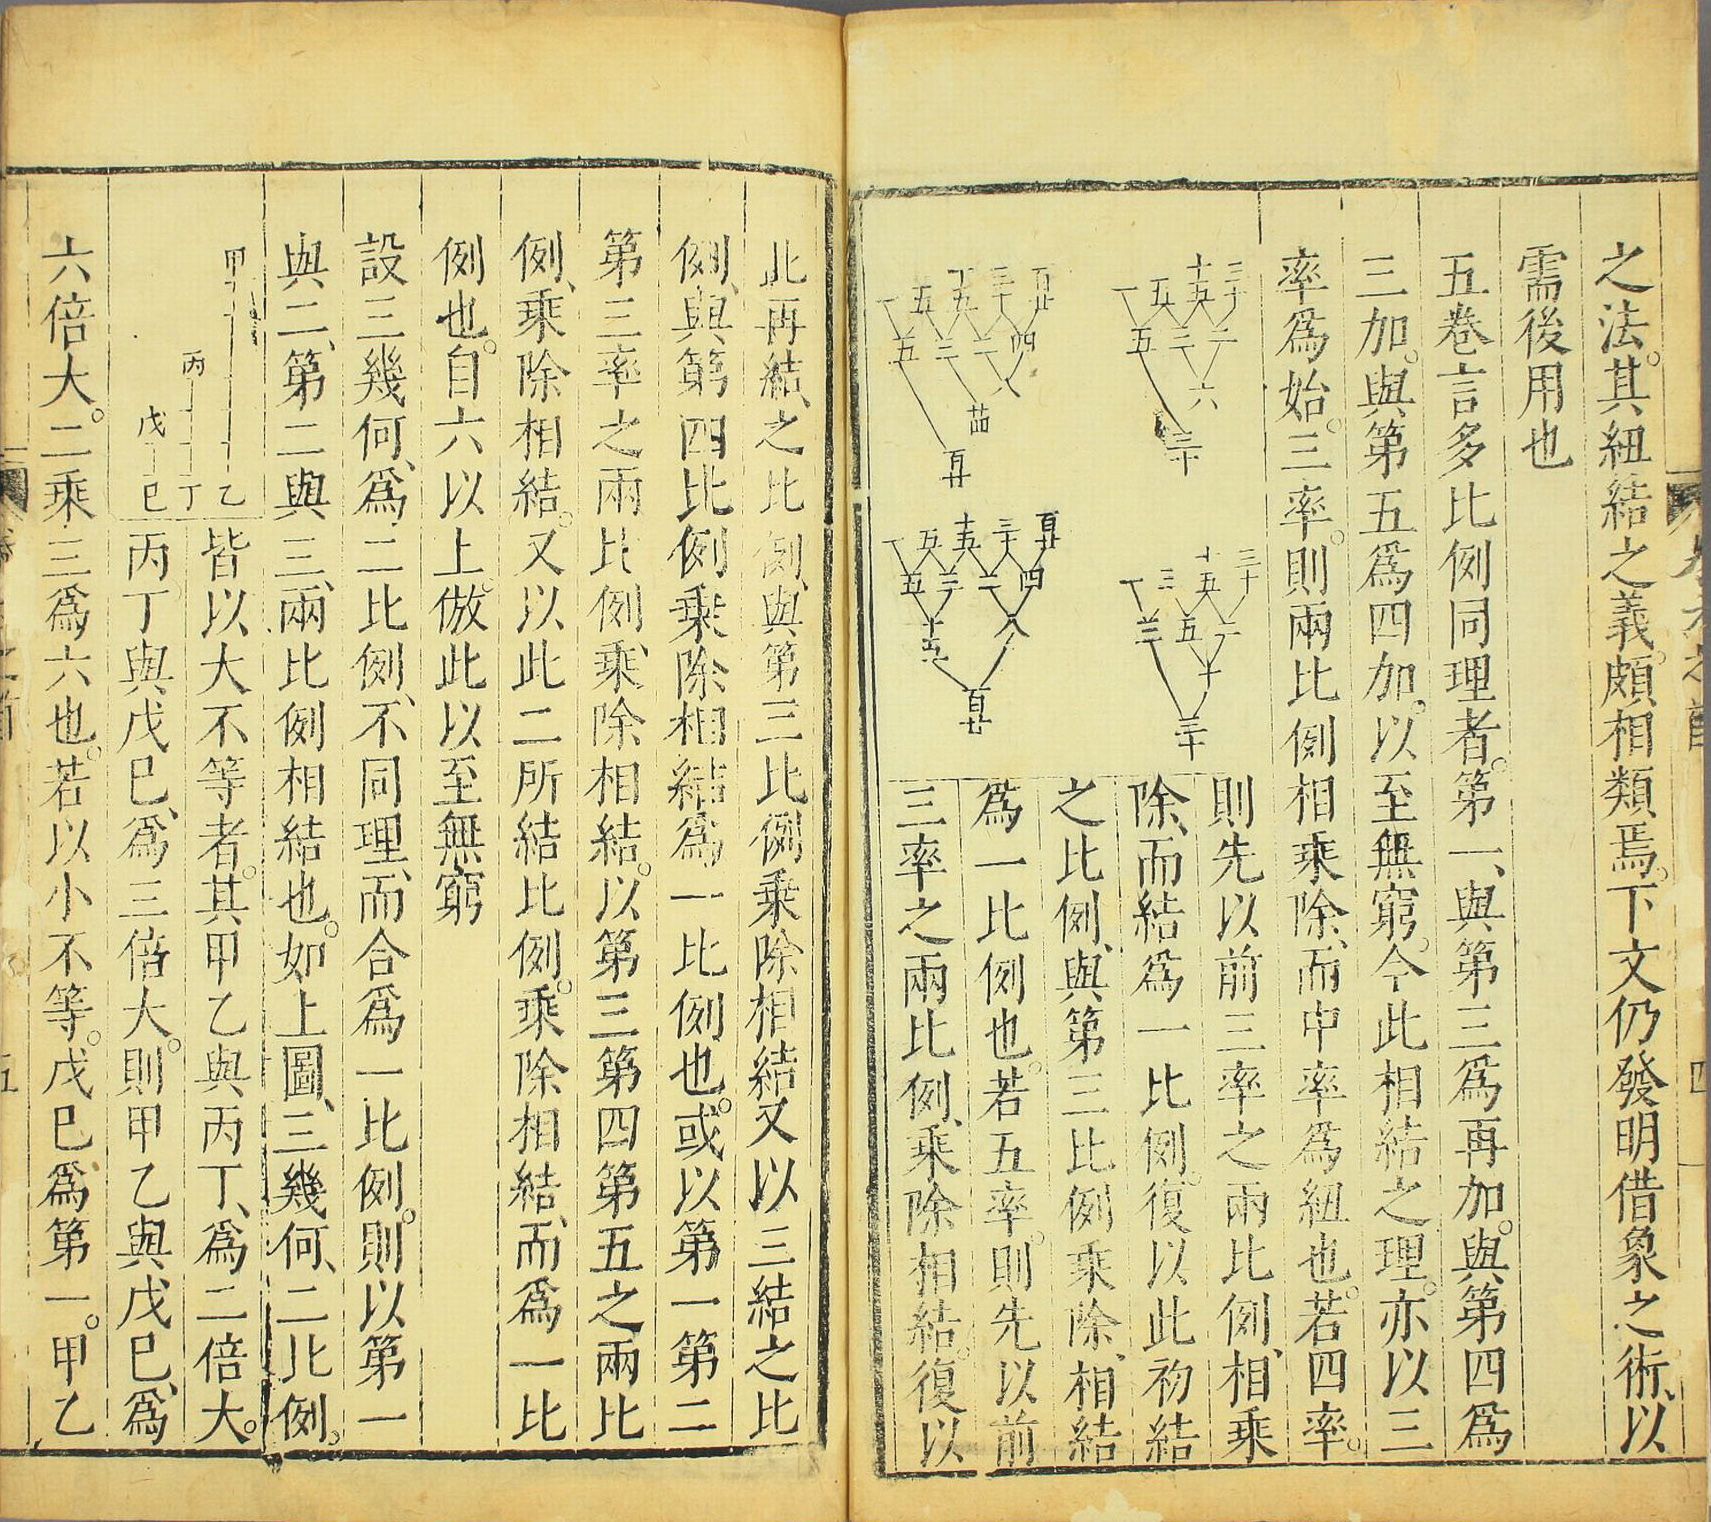 之法。其紐結之義。頗相類焉。下文仍發明借象之術、以
需後用也
五卷言多比例同理者。第一、與第三爲再加。與第四爲
三加。與第五爲四加。以至無窮。今此相結之理。亦以三
率爲始。三率。則兩比例相乘除、而中率爲紐也。若四率。
則先以前三率之兩比例、相乘
除、而結爲一比例。復以此初結
之比例、與第三比例乘除、相結
爲一比例也。若五率。則先以前
三率之兩比例、乘除相結。復以
三十 十五 五 一
二 三 五
六
三十
三十 十五 三 一
二 五 三
十
三十
四
此再結、之比例、與第三比例乘除相結又以三結之比
例、與第四比例乘除相結爲一比例也。或以第一第二
第三率之兩比例、乘除相結。以第三第四第五之兩比
例、乘除相結。又以此二所結比例。乘除相結、而爲一比
例也。自六以上。倣此以至無窮
設三幾何、爲二比例、不同理、而合爲一比例。則以第一
與二、第二與三、兩比例相結也。如上圖、三幾何、二比例。
皆以大不等者。其甲乙與丙丁、爲二倍大。
丙丁與戊巳、爲三倍大。則甲乙與戊巳、爲
甲 乙
丙 丁
戊 巳
六倍大。二乘三爲六也。若以小不等。戊巳爲第一。甲乙
五